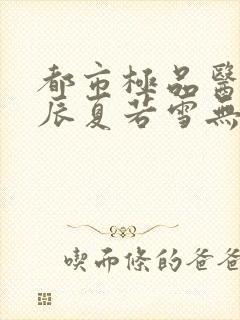 都市極品醫
辰夏若雪無
喫面條的爸爸